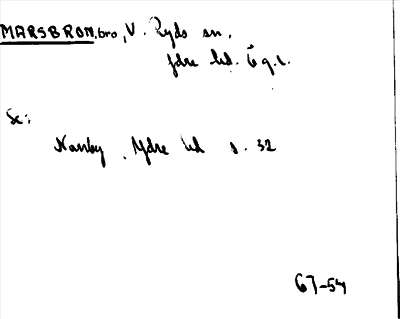 MARSBRON, bro, V. Ryds sn,
Ydre hd. Ög.l.
Se:
Narrby, Ydre hd s. 32
67-54